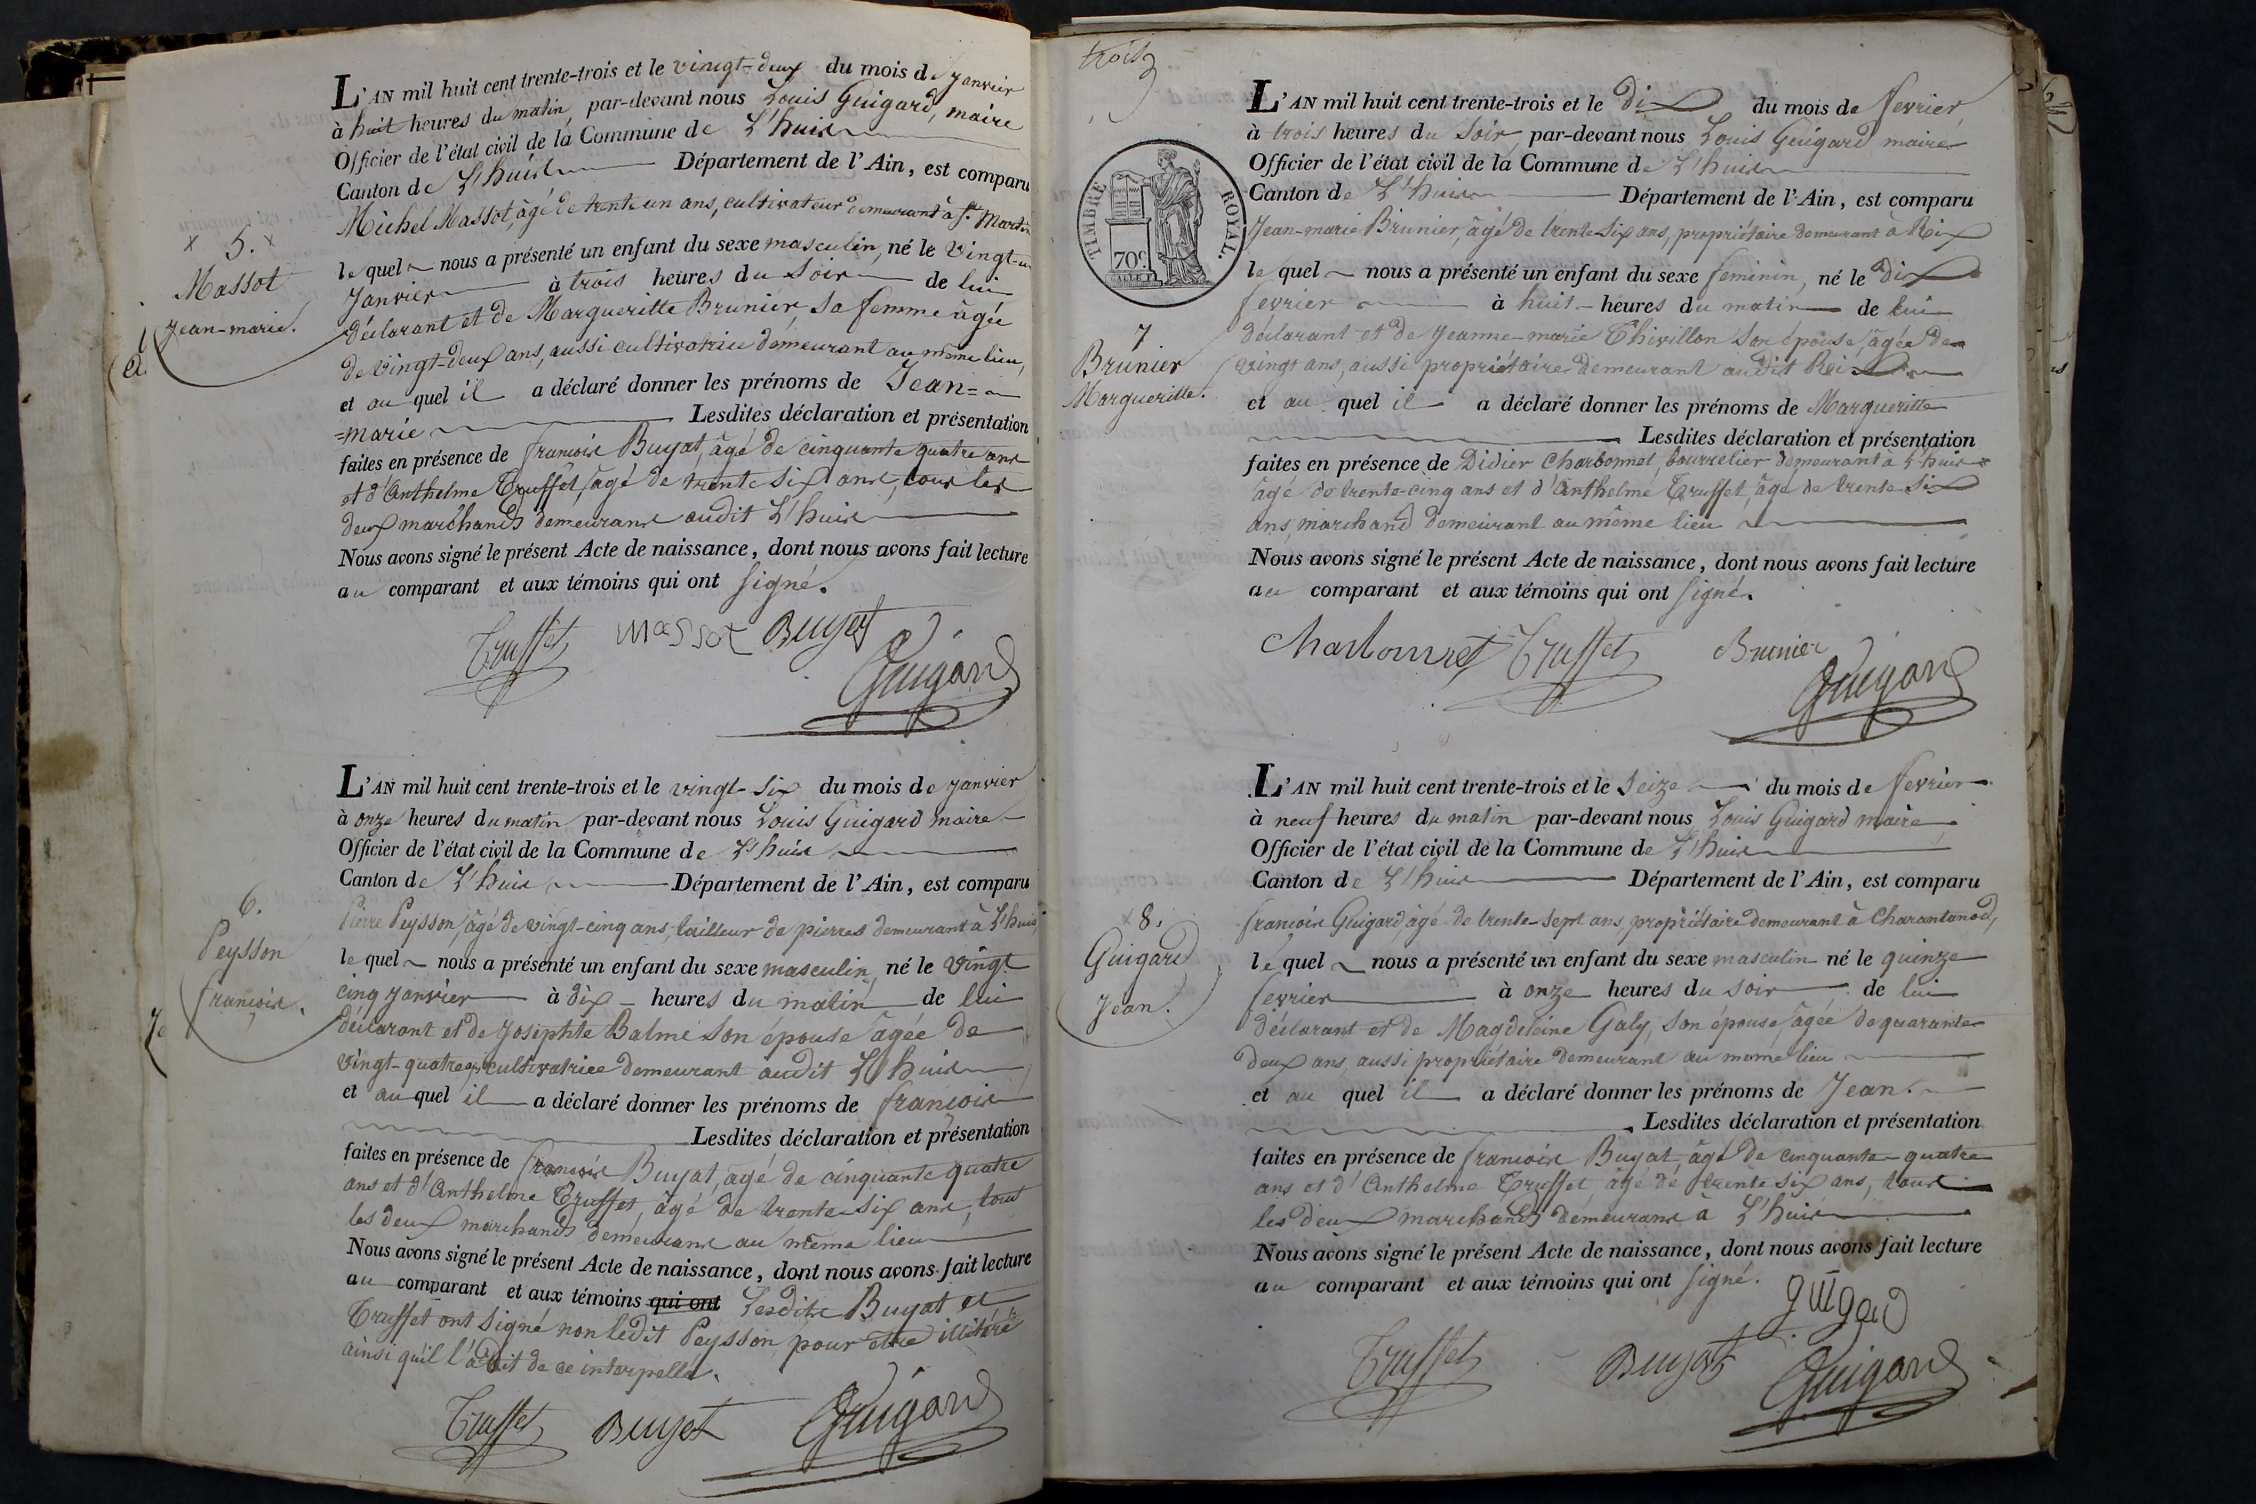 L'AN mil huit cent trente-trois et le vingt-deux du mois de janvier
à huit heures du matin, par-devant nous Louis Guigard, maire
Officier de l'état civil de la Commune de L'huis
Canton de L'huis Département de l'Ain, est comparu
Michel Massot, âgé de trente un ans, cultivateur demeurant à St. Martin
le quel nous a présenté un enfant du sexe masculin, né le vingt-un
janvier à trois heures du soir de lui
déclarant et de Margueritte Brunier sa femme âgée
de vingt-deux ans, aussi cultivatrice demeurant au même lieu,
et au quel il a déclaré donner les prénoms de Jean=
=marie Lesdites déclaration et présentation
faites en présence de françois Buyat, âgé de cinquante quatre ans
et d'Anthelme Truffet, âgé de trente six ans, tous les
deux marchands demeurans audit L'huis
Nous avons signé le présent Acte de naissance, dont nous avons fait lecture
au comparant et aux témoins qui ont signé.
Truffet Massot Buyat
Guigard
x 5. x
Massot
Jean-marie.
L'AN mil huit cent trente-trois et le vingt-six du mois de janvier
à onze heures du matin par-devant nous Louis Guigard maire
Officier de l'état civil de la Commune de L'huis
Canton de L'huis Département de l'Ain, est comparu
Pierre Peysson, âgé de vingt-cinq ans, tailleur de pierres demeurant à L'huis
le quel nous a présenté un enfant du sexe masculin, né le vingt
cinq janvier à dix heures du matin de lui
déclarant et de Josephte Balme son épouse âgée de
vingt-quatre ans cultivatrice demeurant audit L'huis
et au quel il a déclaré donner les prénoms de françois
Lesdites déclaration et présentation
faites en présence de françois Buyat, âgé de cinquante quatre
ans et d'Anthelme Truffet, âgé de trente six ans, tous
les deux marchands demeurans au même lieu
Nous avons signé le présent Acte de naissance, dont nous avons fait lecture
au comparant et aux témoins qui ont Lesdits Buyat et
Truffet ont signé non ledit Peysson pour être illitéré
ainsi qu'il l'a dit de ce interpellé.
Truffet Buyat Guigard
6.
Peysson
françois.
trois
L'AN mil huit cent trente-trois et le dix du mois de fevrier
à trois heures du soir, par-devant nous Louis Guigard maire
Officier de l'état civil de la Commune de L'huis
Canton de L'huis Département de l'Ain, est comparu
Jean-marie Brunier, âgé de trente-six ans, propriétaire demeurant à Rix
le quel nous a présenté un enfant du sexe feminin, né le dix
fevrier à huit heures du matin de lui
déclarant et de Jeanne-marie Thivillon son épouse, âgée de
vingt ans, aussi propriétaire demeurant audit Rix
et au quel il a déclaré donner les prénoms de Margueritte
Lesdites déclaration et présentation
faites en présence de Didier Charbonnet, bourrelier demeurant à L'huis
âgé de trente-cinq ans et d'Anthelme Truffet, âgé de trente-six
ans, marchand demeurant au même lieu
Nous avons signé le présent Acte de naissance, dont nous avons fait lecture
au comparant et aux témoins qui ont signé.
Charbonnet Truffet Brunier
Guigard
TIMBRE ROYAL.
70c
7
Brunier
Margueritte.
L'AN mil huit cent trente-trois et le seize du mois de fevrier
à neuf heures du matin par-devant nous Louis Guigard maire
Officier de l'état civil de la Commune de L'huis
Canton de L'huis Département de l'Ain, est comparu
françois Guigard, âgé de trente-sept ans, propriétaire demeurant à Charantonod,
le quel nous a présenté un enfant du sexe masculin né le quinze
fevrier à onze heures du soir de lui
déclarant et de Magdeleine Galy, son épouse, âgée de quarante
deux ans, aussi propriétaire demeurant au même lieu
et au quel il a déclaré donner les prénoms de Jean.
Lesdites déclaration et présentation
faites en présence de françois Buyat, âgé de cinquante-quatre
ans et d'Anthelme Truffet âgé de trente six ans, tous
les deux marchands demeurans à L'huis
Nous avons signé le présent Acte de naissance, dont nous avons fait lecture
au comparant et aux témoins qui ont signé.
guigard
Truffet Buyat Guigard
x 8.
Guigard
Jean.